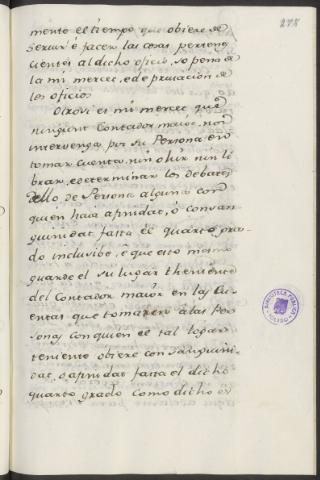 278
mente el tiempo que obiere de
servir é facer las cosas pertene
cientes al dicho oficio, so pena de
la mi merced, e de privacion de
los oficios
Otrosi es mi merced que
ningunt Contador maior, non
intervenga por su Persona en
tomar cuentas, nin ohir nin li
brar, e determinar los debates
dello de Persona alguna con
quien haia afinidat, ó consan
guinidat fasta el quarto gra
do inclusibe, é que esto mismo
guarde el su lugar theniente
del Contador maior en las Cu
entas que tomaren á las Per
sonas con quien el tal logar
teniente obiere consanguini
dat, o afinidat fasta el dicho
quarto grado como dicho es
BIBLIOTECA PUBLICA
TOLEDO